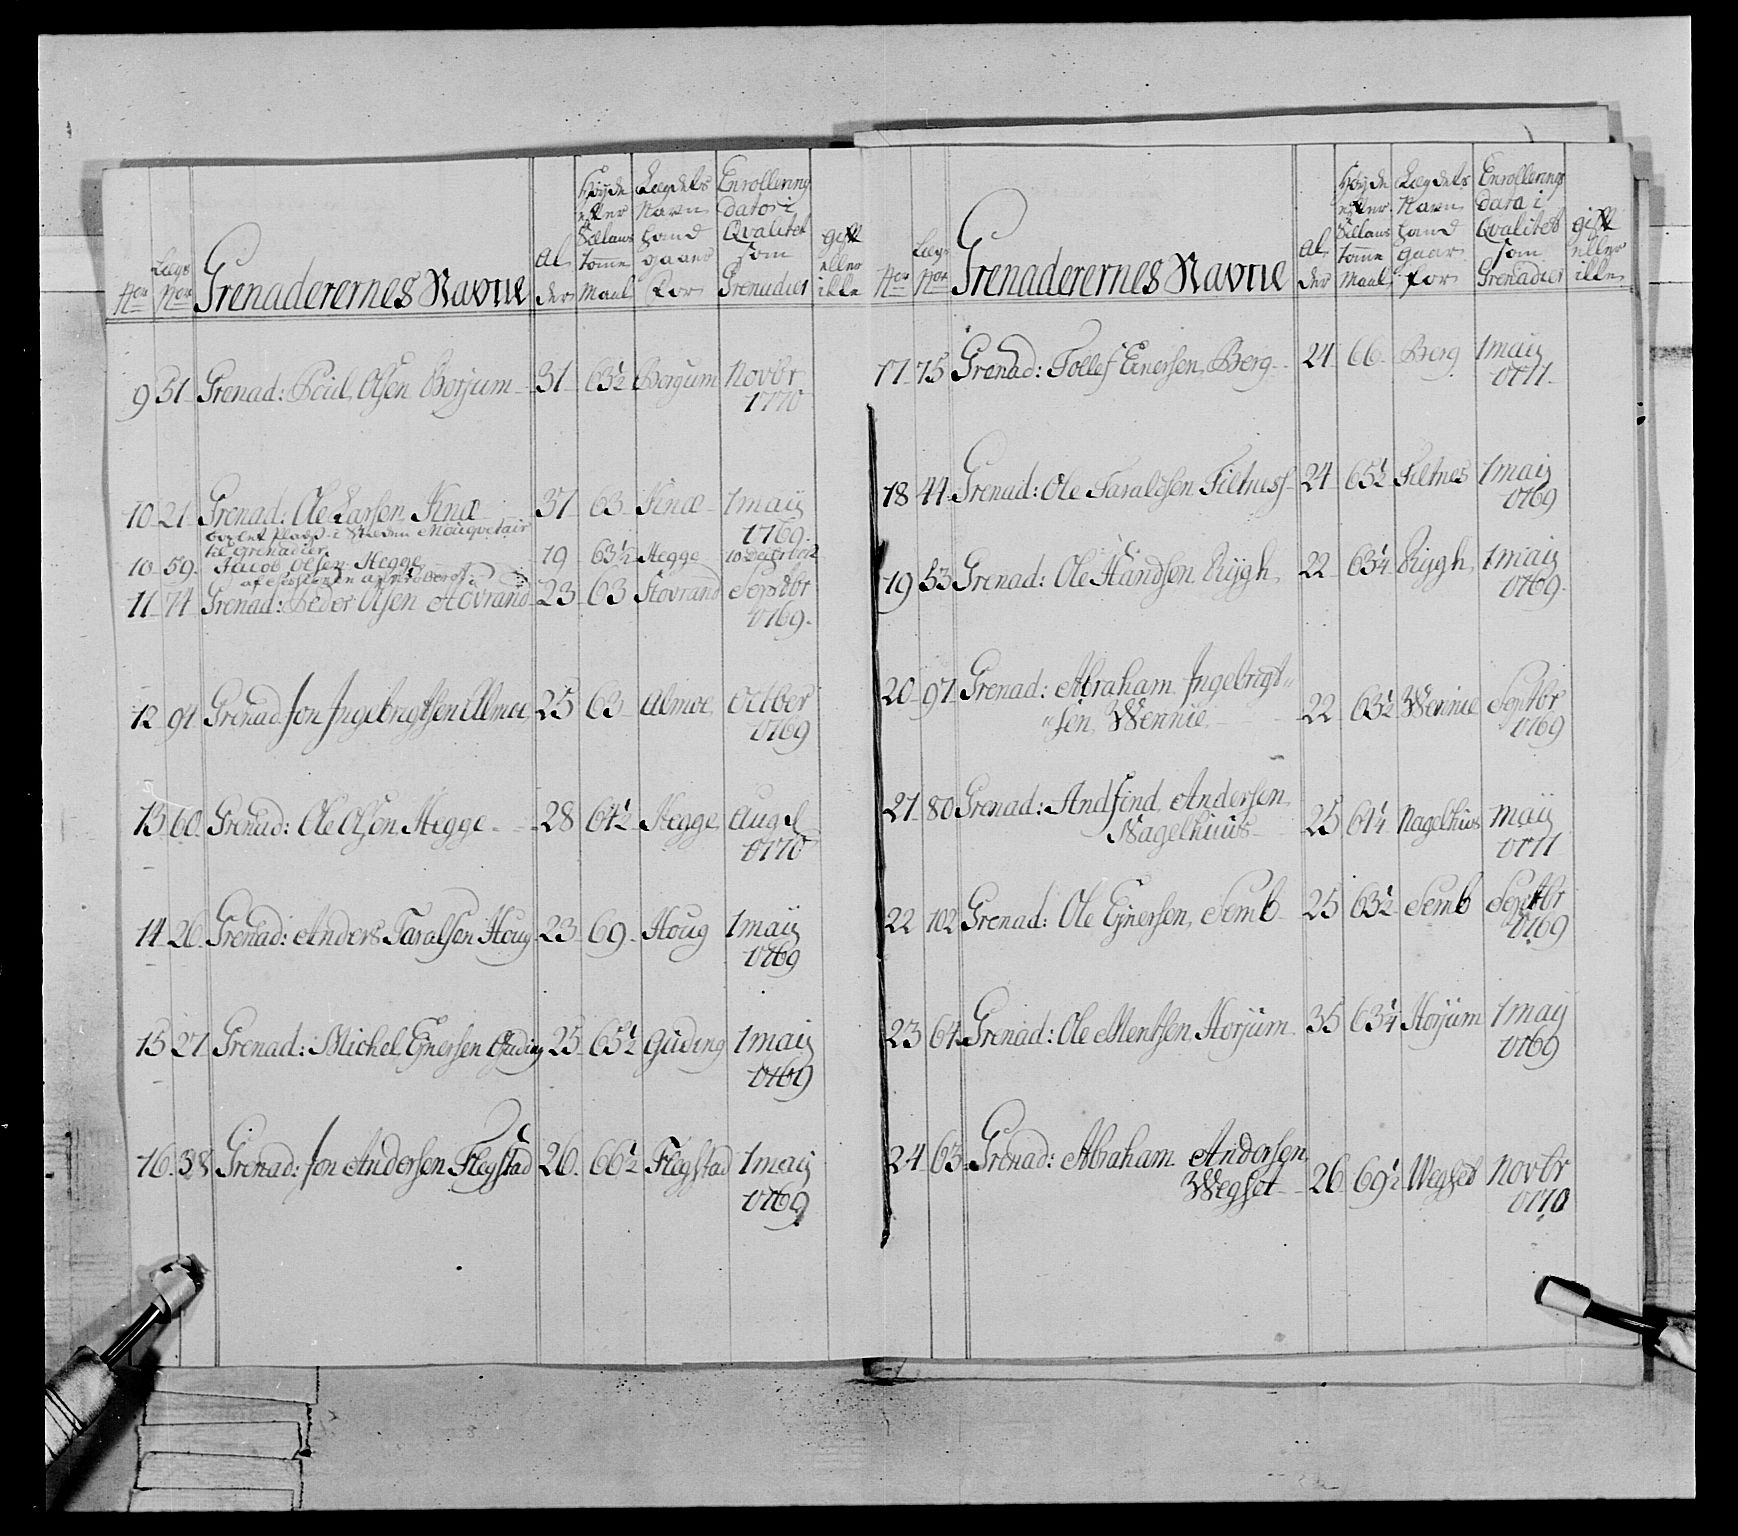 Nor
Lægs Nor
Grenaderernes Navne
Al der
Høyde efter Sællans Tomme Maal
Lægdets Navn hand gaaer for
Enrollering Dato i Qvalitet som Grenadier
gift eller ikke
9 51 Grenad: Poul Olsen Borjum 31 63½ Borgum Novbr
1770
10 21 Grenad: Ole Larsen Kinæ 37 63 Kinæ 1 maij
1769
til Grenadier
10 59 Jacob Olsen Hegge 19 63½ Hegge
11 74 Grenad: Peder Olsen Hovrand 23 63 Hovrand Septbr
1769
12 91 Grenad: Jon Ingebrigtsen Almoe 25 63 Almoe October
1769
13 60 Grenad: Ole Olsen Hegge 28 64½ Hegge Aug
1770
14 26 Grenad: Anders Taralsen Houg 23 69 Houg 1 maij
1769
15 27 Grenad: Michel Ejnersen Guding 25 65½ Guding 1 maij
1769
16 38 Grenad: Jon Andersen Flegstad 26 66½ Flegstad 1 maij
1769
Nor
Lægs Nor
Grenaderernes Navne
Al der
Høyde efter Sællans Tomme Maal
Lægdets Navn hand gaar for
Enrollerings Data i Qvalitet som Grenadier
gift eller ikke
17 75 Grenad: Tollef Einersen Berg 24 66 Berg 1 maij
1771
18 44 Grenad: Ole Taralsen Filtness 24 65½ Filtnes 1 maij
1769
19 53 Grenad: Ole Handsen Rygh 22 63¼ Rygh 1 maij
1769
20 97 Grenad: Abraham Ingebrigt-
sen Wennie 22 63½ Wennie Septbr
1769
21 80 Grenad: Andfind Andersen
Nagelhuus 25 61¼ Nagelhuus maij
1771
22 102 Grenad: Ole Ejnersen Semb 25 63½ Semb Septbr
1769
23 64 Grenad: Ole Mentsen Horjum 35 63¼ Horjum 1 maij
1769
24 63 Grenad: Abraham Andersen
Wegset 26 69½ Wegset Novbr
1770